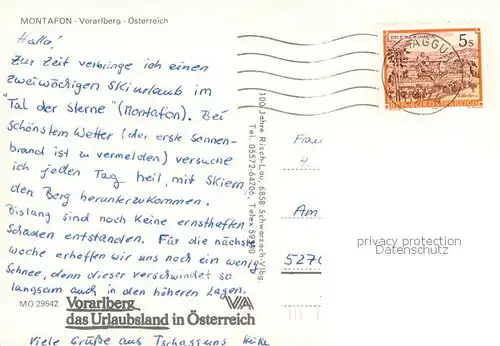 MONTAFON - Vorarlberg - Österreich
Hallo!
Zur Zeit verbringe ich einen
zweiwöchigen Skiurlaub im
"Tal der Sterne" (Montafon). Bei
schönstem Wetter (der erste Sonnen-
brand ist zu vermelden) versuche
ich jeden Tag heil, mit Skiern
den Berg herunterzukommen.
Bislang sind noch keine ernsthaften
Schäden entstanden. Für die nächste
Woche erhoffen wir uns noch ein wenig
Schnee, denn dieser verschwindet so
langsam auch in den höheren Lagen.
MO 29542
Vorarlberg
das Urlaubsland in Österreich
VVA
Viele Grüße aus Tschagguns Heike
100 Jahre Risch-Lau, 6858 Schwarzach-Vlbg.
Tel. 05572-64706, Telex 59200
5s
REPUBLIK ÖSTERREICH
Frau
Am
5270
privacy protection
Datenschutz